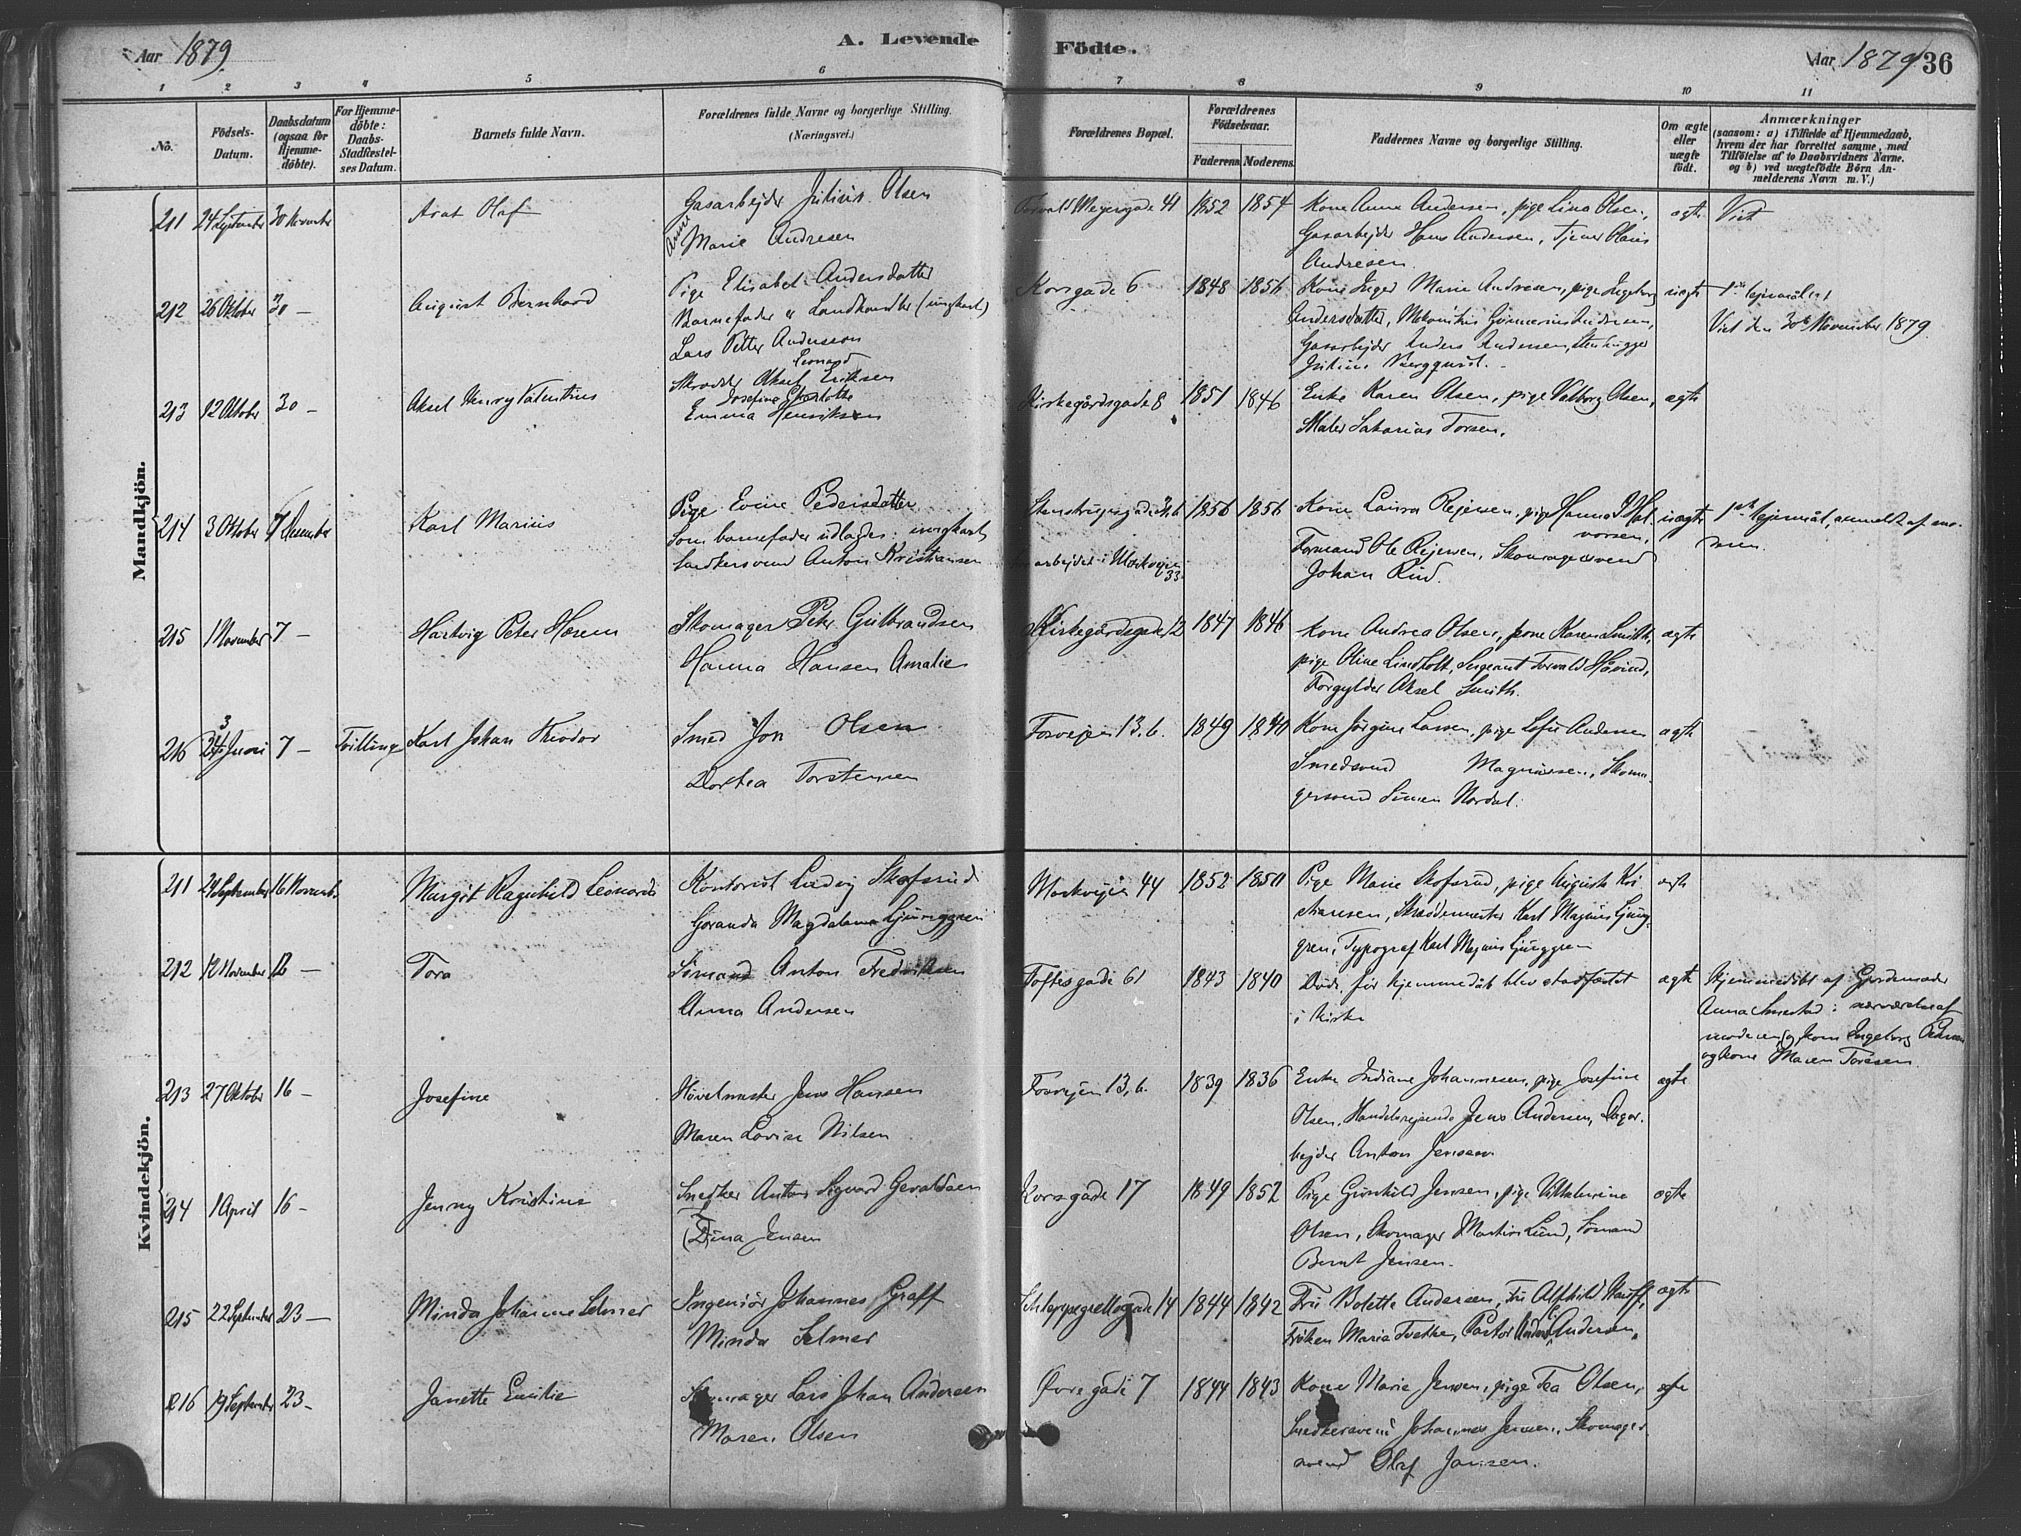 Aar 1879
A. Levende
Födte.
Aar 1879
36
1
2
3
4
5
6
7
8
9
10
11
No.
Födsels-
Datum.
Daabsdatum
(ogsaa for
Hjemme-
döbte).
For Hjemme-
döbte:
Daabs-
Stadfæstel-
ses Datum.
Barnets fulde Navn.
Forældrenes fulde Navne og borgerlige Stilling.
(Næringsvei.)
Forældrenes Bopæl.
Forældrenes
Födselsaar.
Faderens.
Moderens.
Faddernes Navne og borgerlige Stilling.
Om ægte
eller
uægte
födt.
Anmærkninger
(saasom: a) i Tilfælde af Hjemmedaab,
hvem der har forrettet samme, med
Tilföielse af to Daabsvidners Navne.
og b) ved uægtefödte Börn An-
melderens Navn m. V.)
Mandkjön.
211 24 September 30 November
Olaf
Gasarbejder Julius Olsen
Marie Andresen
Torvald Meyersgade 41
1852 1854
Kone Anna Andersen, pige Lina Olsen,
Gasarbejder Hans Andersen, Tjener
Andresen
ægte
Viet
212 26 Oktober 30 —
August Bernhard
Pige Elisabet Andersdatter
Barnefader er Landhandler (ungkarl)
Lars Petter Andersson
Korsgade 6
1848 1856
Kone Inger Marie Andresen, pige Ingeborg
Andersdatter,
Gasarbejder Anders Andersen,
uægte
1ste lejermål
Viet den 30te November 1879
213 12 Oktober 30 —
Aksel Henry Valentius
Aksel Leonard Eriksen
Emma Josefine Charlotte Henriksen
Kirkegårdsgade 8
1851 1846
Enke Karen Olsen, pige Valborg Olsen,
Maler Sakarias Torsen.
ægte
214 3 Oktober 7 Desember
Karl Marius
Pige Evine Pedersdatter
Som barnefader udlagdes: ungkarl
snedkersvend Anton Kristiansen
Steenstrupsgade
arbejdet i Markvejen
33
1856 1856
Kone Laura Rejersen, pige Hanna Hal-
vorsen,
Formand Ole Rejersen, Skomagersvend
Johan Rud.
uægte
1ste lejermål, anmeldt af mo-
ren.
215 1 November 7 —
Hartvig Peter
Skomager Peter Gulbrandsen
Hanna Hansen Amalie
Kirkegårdsgade 12
1847 1846
Kone Andrea Olsen, kone Karen Smith,
pige Oline Lindholt, Sergeant Torvald
Forgylder Aksel Smith.
ægte
216 Juni 7 —
Tvilling
Karl Johan Teodor
Smed Jon Olsen
Dortea Torstensen
Fossvejen 13, b.
1849 1840
Kone Jørgine Larsen, pige Sofie Andersen
Smedsvend Magnussen, Skoma-
gersvend Simen Nordal.
ægte
Kvindekjön.
211 29 September 16 November
Margit Ragnhild Leonarda
Kontorist Ludvig Skofsrud
Magdalena Ljunggren
Markvejen 44
1852 1850
Pige Marie Skofsrud, pige Augusta Kri-
stiansen, Skreddermester Karl Magnus Ljung-
gren, Typograf Karl Magnus Ljunggren
ægte
212 12 November 16 —
Tora
Sömand Anton Fredriksen
Anna Andersen
Toftesgade 61
1843 1840
Døde, før hjemmedåb blev stadfæstet
i kirke
ægte
Hjemmedøbt af Gjordemoder
Anna Smestad i nærværelse af
moderen og kone Ingeborg
og kone Maren Toresen
213 27 Oktober 16 —
Josefine
Høvelmester Jens Hansen
Maren Lovise Nilsen
Fossvejen 13, b.
1839 1836
Enke Indiane Johannesen, pige Josefine
Olsen, Handelsrejsende Jens Andersen, Dagar-
bejder Anton Jensen
ægte
214 1 April 16 —
Jenny Kristine
Snedker Anton Sigvard Gevaldsen
Dina Jensen
Korsgade 17
1849 1852
Pige Gunhild Jensen, pige Vilhelmine
Olsen, Skomager Martin Lund, Sömand
Bernt Jensen.
ægte
215 22 September 23 —
Minda Johanne Selmer
Ingeniör Johannes Graff
Minda Selmer
Schleppegrellsgade 14
1844 1842
Fru Bolette Andersen, Fru Alfhild
Frøken Maria Tvethe, Pastor Andersen.
ægte
216 19 September 23 —
Janette Emilie
Skomager Lars Johan Andersen
Maren Olsen
Øvregade 7
1844 1843
Kone Marie Jensen, pige Tea Olsen,
Snedkersvend Johannes Jensen, Skomager-
svend Olaf Jansen.
ægte